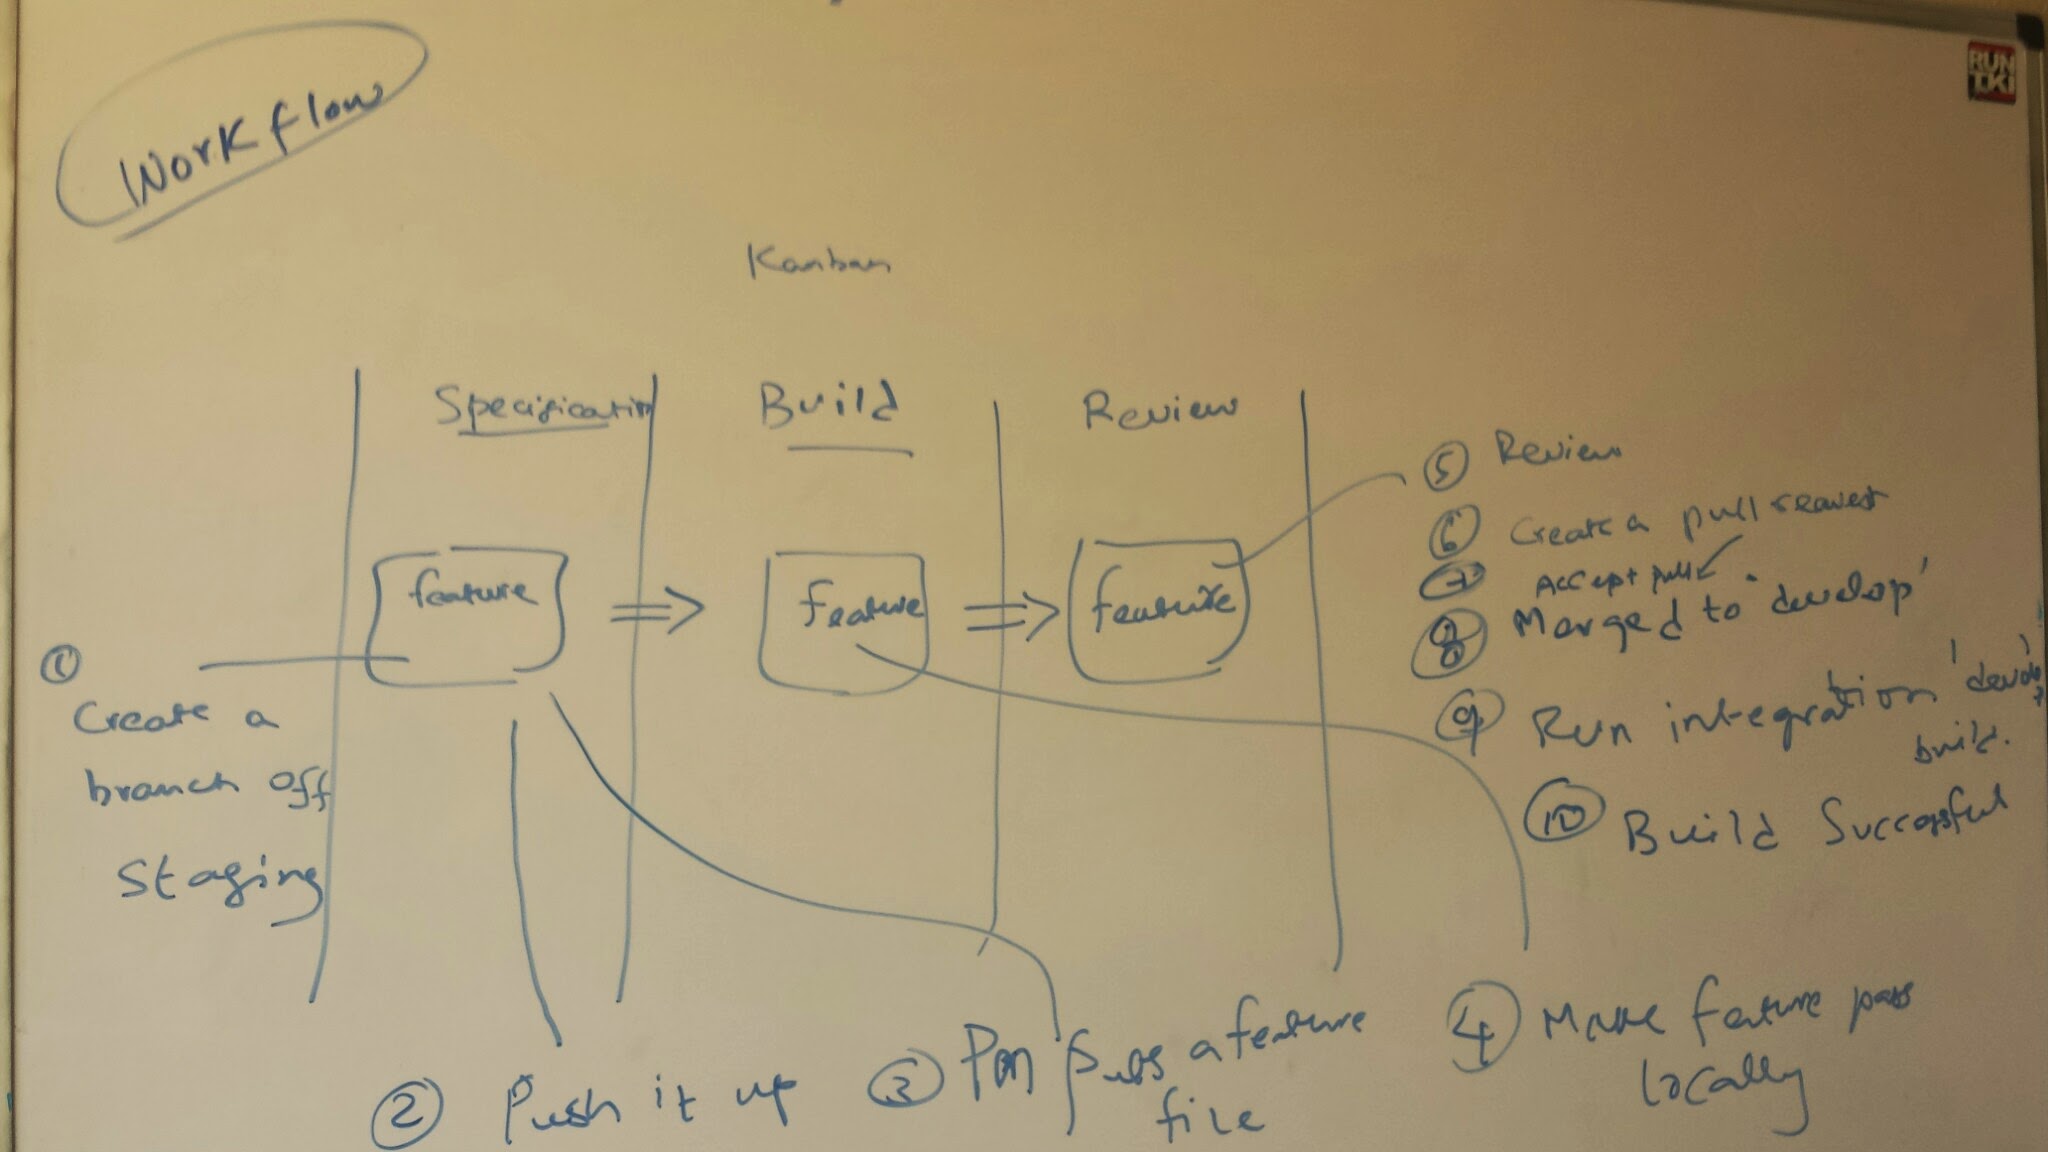 Workflow
RUN
T.KI
Kanban
Specification
Build
Review
feature
feature
feature
① Create a
branch off
staging
② Push it up
③ PM puts a feature
file
④ Make feature pass
locally
⑤ Review
⑥ Create a pull request
⑦ Accept pull
⑧ Merged to 'develop'
⑨ Run integration
build.
⑩ Build Successful